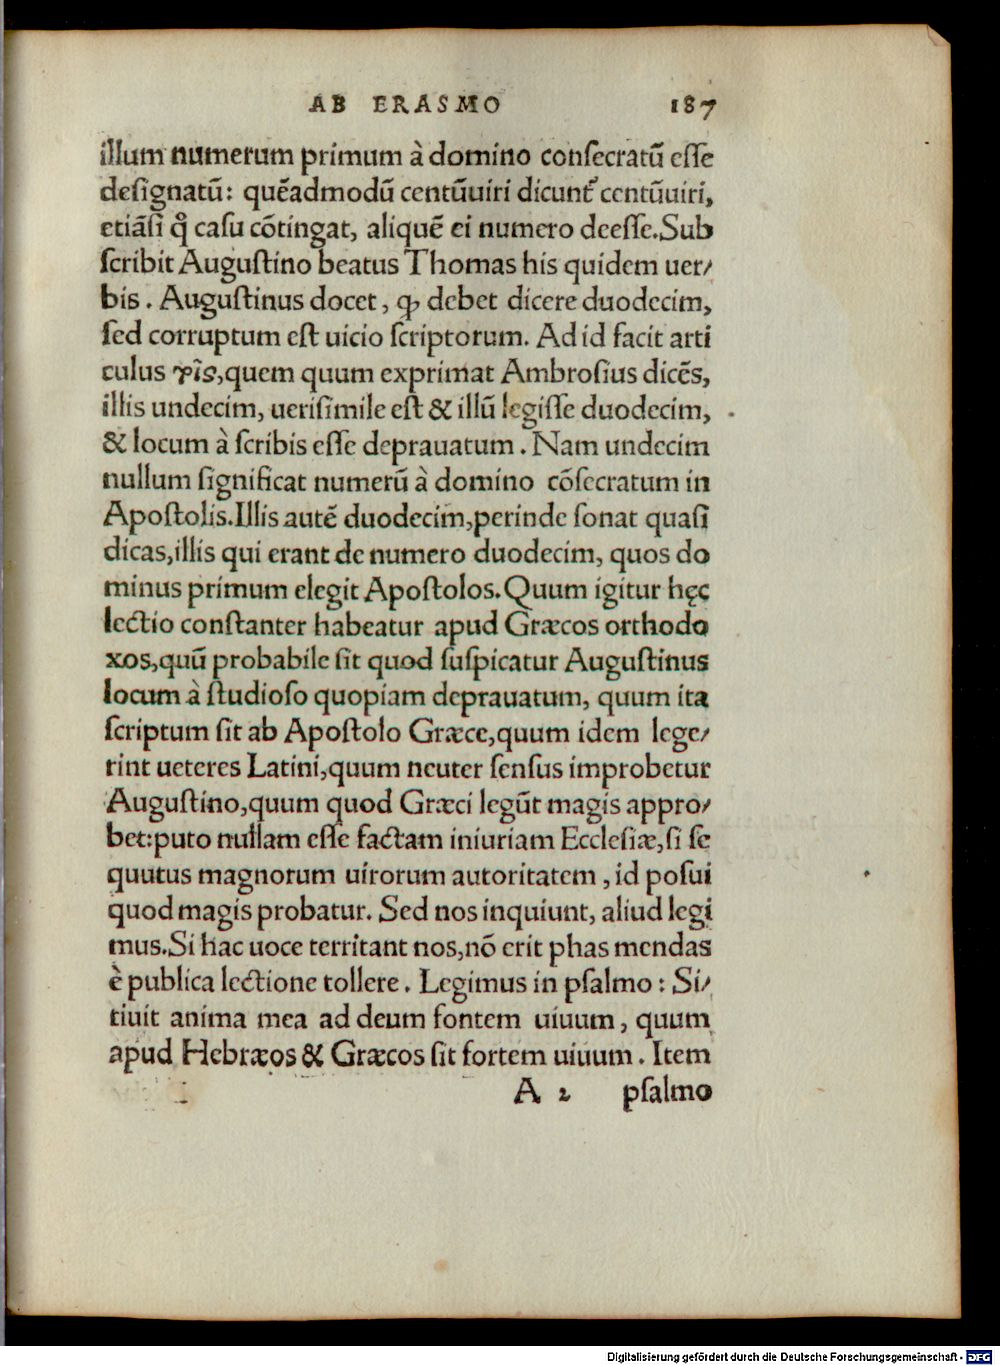 AB ERASMO 187
illum numerum primum à domino consecratũ esse
designatũ: quẽadmodũ centũuiri dicunť centũuiri,
etiãsi q̊ casu cõtingat, aliquẽ ei numero deesse. Sub
scribit Augustino beatus Thomas his quidem uer/
bis. Augustinus docet, ꝙ debet dicere duodecim,
sed corruptum est uicio scriptorum. Ad id facit arti
culus τοῖς, quem quum exprimat Ambrosius dicẽs,
illis undecim, uerisimile est & illũ legisse duodecim,
& locum à scribis esse deprauatum. Nam undecim
nullum significat numerũ à domino cõsecratum in
Apostolis. Illis autẽ duodecim, perinde sonat quasi
dicas, illis qui erant de numero duodecim, quos do
minus primum elegit Apostolos. Quum igitur hęc
lectio constanter habeatur apud Græcos orthodo
xos, quũ probabile sit quod suspicatur Augustinus
locum à studioso quopiam deprauatum, quum ita
scriptum sit ab Apostolo Græce, quum idem lege/
rint ueteres Latini, quum neuter sensus improbetur
Augustino, quum quod Græci legũt magis appro/
bet: puto nullam esse factam iniuriam Ecclesiæ, si se
quutus magnorum uirorum autoritatem, id posui
quod magis probatur. Sed nos inquiunt, aliud legi
mus. Si hac uoce territant nos, nõ erit phas mendas
è publica lectione tollere. Legimus in psalmo: Si/
tiuit anima mea ad deum fontem uiuum, quum
apud Hebræos & Græcos sit fortem uiuum. Item
A 2 psalmo
Digitalisierung gefördert durch die Deutsche Forschungsgemeinschaft - DFG